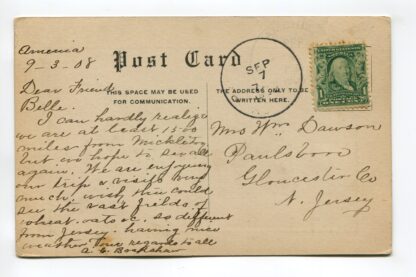 Amenia
9-3-08
Post Card
SEP
7
THIS SPACE MAY BE USED
FOR COMMUNICATION.
THE ADDRESS ONLY TO BE
WRITTEN HERE.
Dear Friend
Belle.
I can hardly realize
we are at least 1500
miles from Mickleton
but we hope to see all
again. We are enjoying
our trip & visits very
much, wish thee could
see the vast fields of
wheat, oats &c. so different
from Jersey. having nice
weather. Love regards to all
Mrs Wm Dawson
Paulsboro
Gloucester Co
N. Jersey